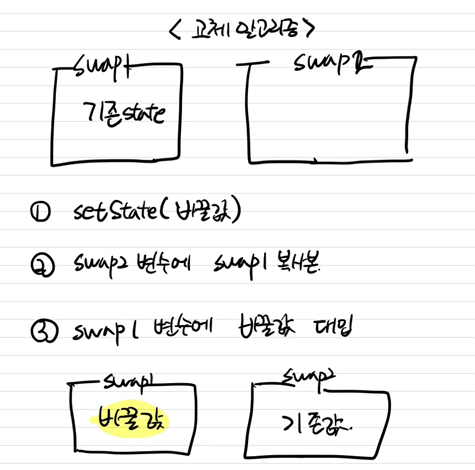 < 교체 알고리즘 >
swap1 swap2
기존state
① setState(바꿀값)
② swap2 변수에 swap1 복사본.
③ swap1 변수에 바꿀값 대입
swap1 swap2
바꿀값 기존값.